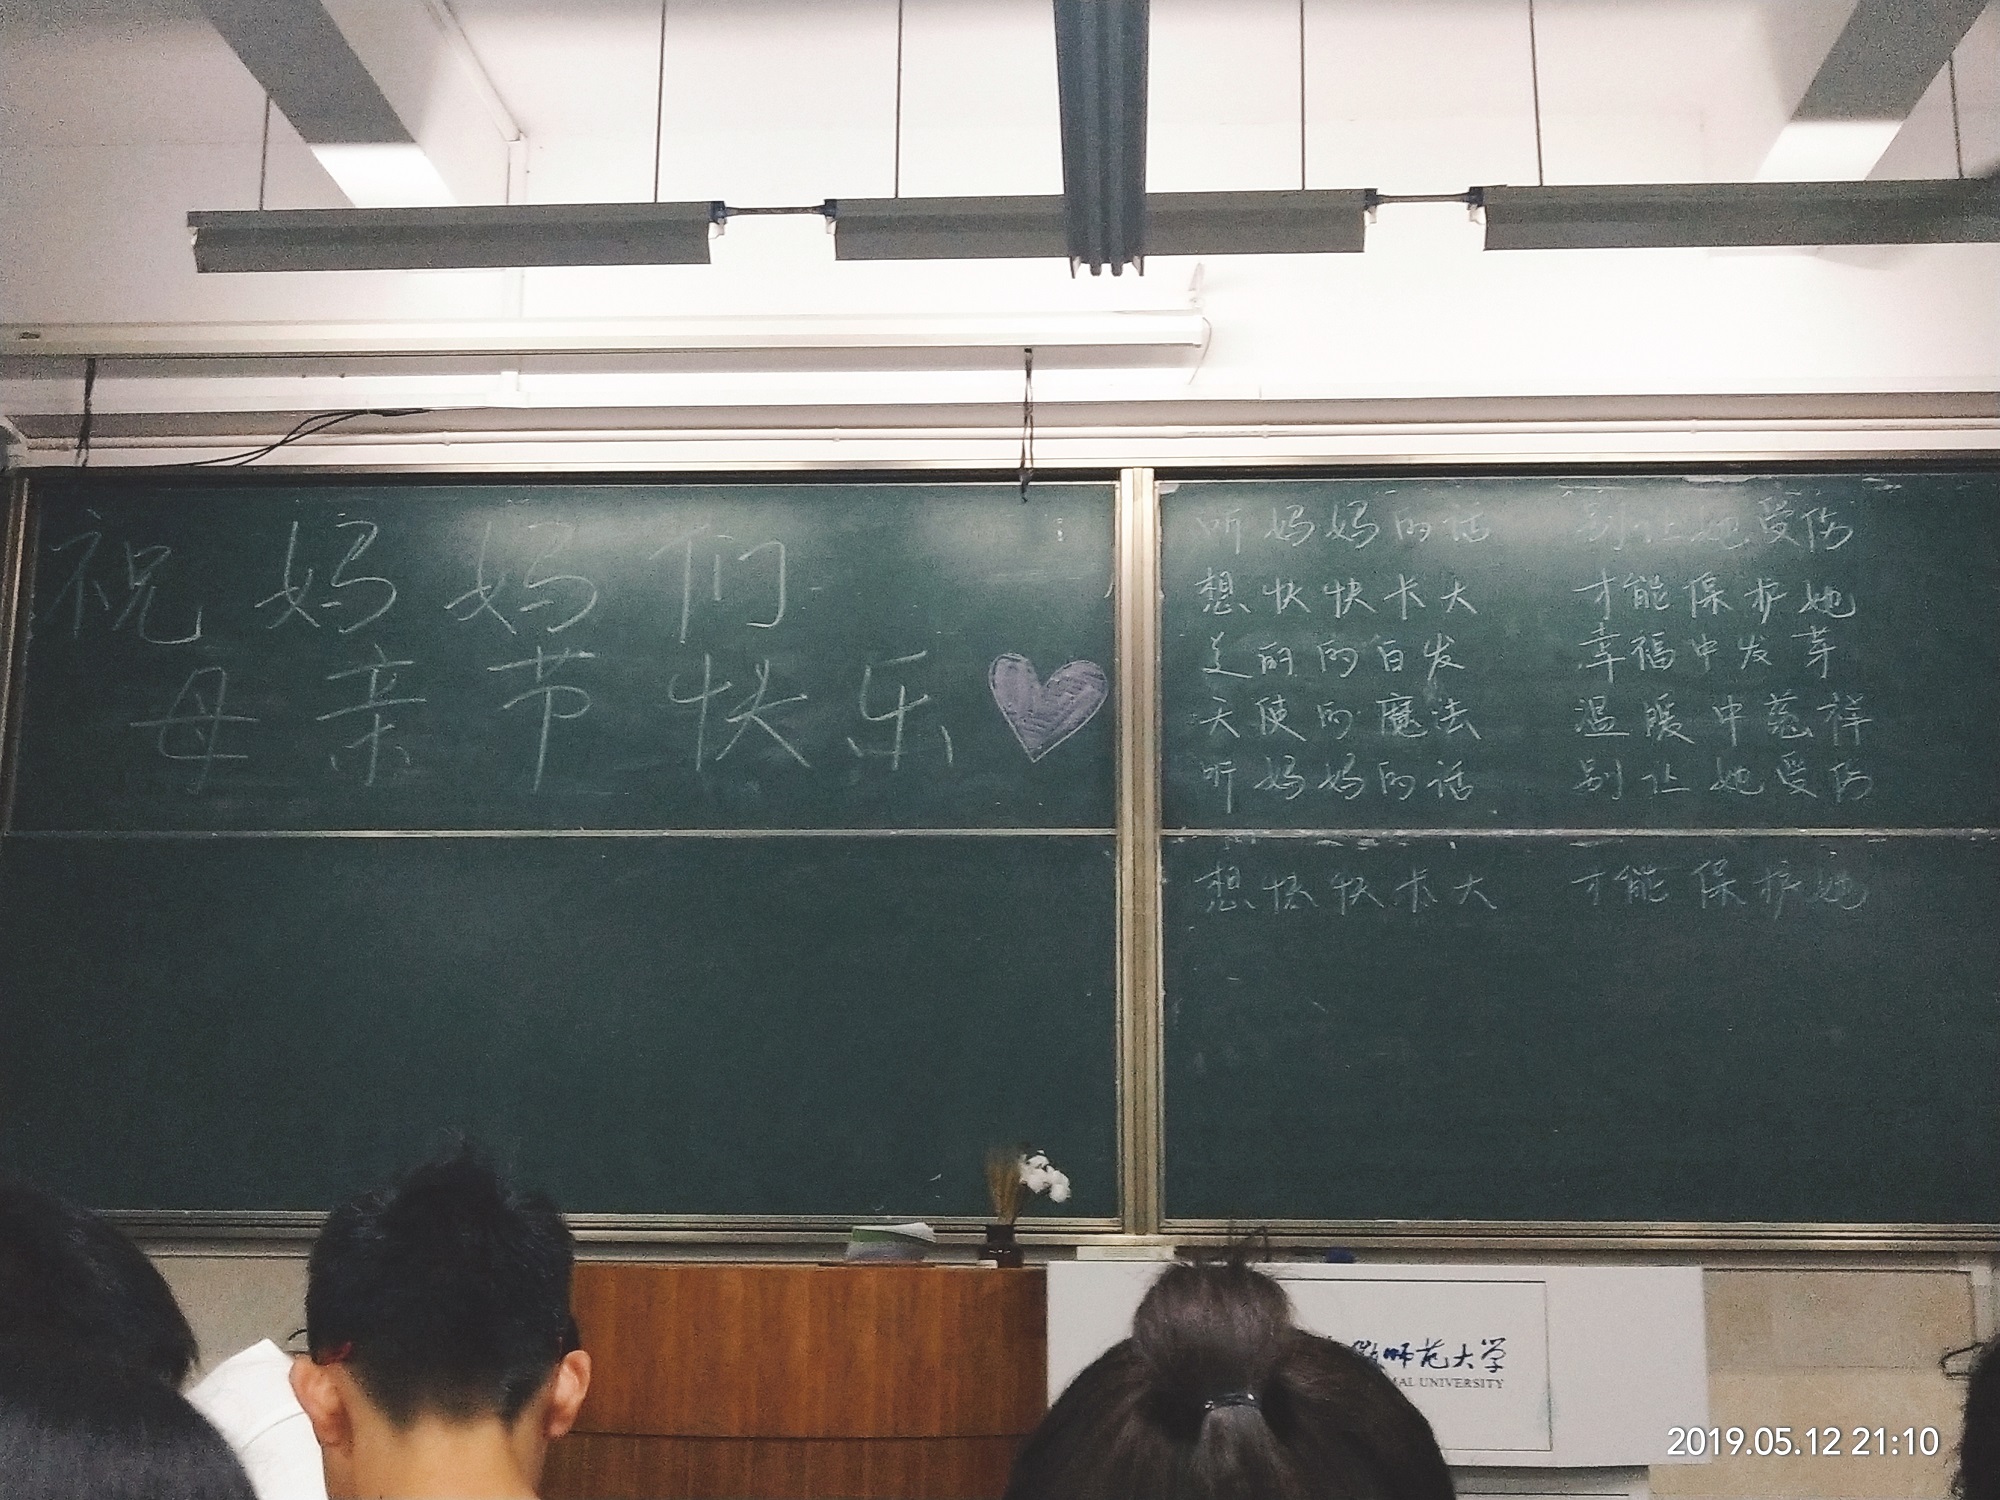 祝妈妈们
母亲节快乐
听妈妈的话 别让她受伤
想快快长大 才能保护她
美丽的白发 幸福中发芽
天使的魔法 温暖中慈祥
听妈妈的话 别让她受伤
想快快长大 才能保护她
师范大学
MAL UNIVERSITY
2019.05.12 21:10